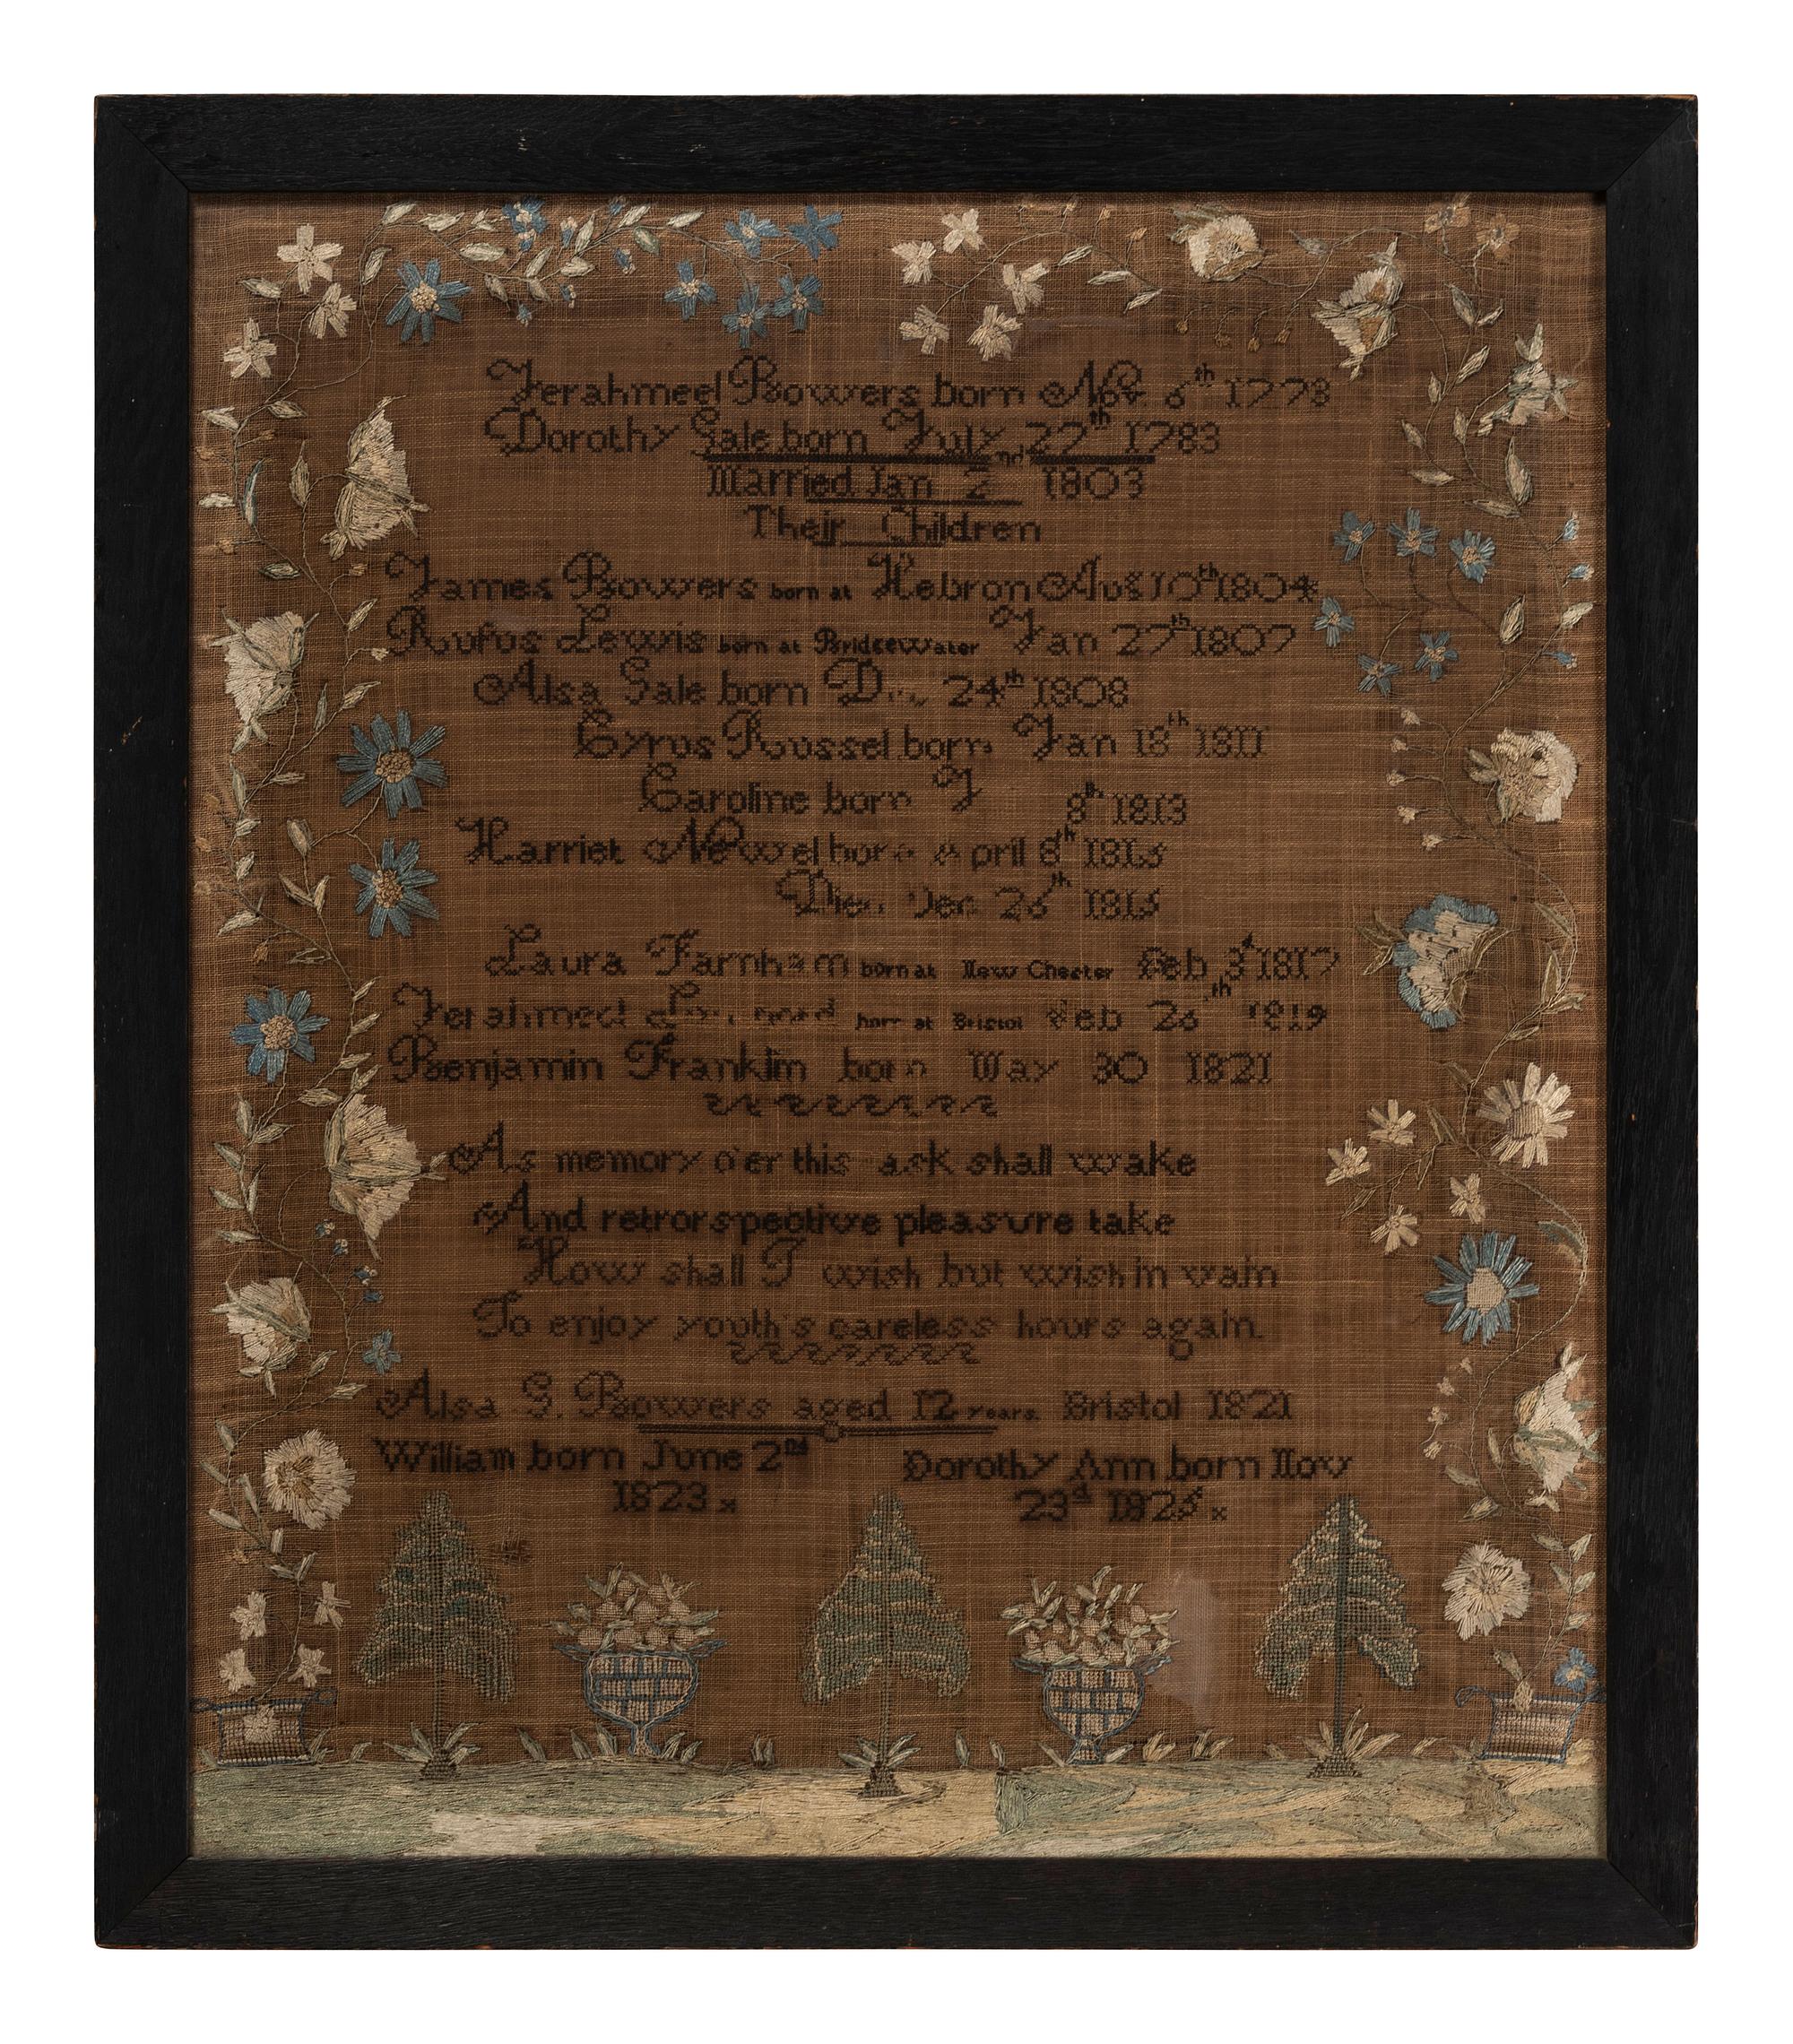 Jerahmeel Bowers born Nov. 6th 1778
Dorothy Sale born July 22th 1783
Married Jan 2nd 1803
Their Children
James Bowers born at Hebron Aug 10th 1804
Rufus Lewis born at Bridgewater Jan 27th 1807
Alsa Sale born 24th 1808
Cyrus Russel born Jan 18th 1811
Caroline born 8th 1813
Harriet Newel born April 8th 1815
Died Dec 26th 1815
Laura Farnham born at New Chester Feb 3d 1817
Jerahmeel born at Bristol Feb 26th 1819
Benjamin Franklin born May 30 1821
As memory o'er this ask shall wake
And retrorspective pleasure take
How shall I wish but wish in vain
To enjoy youth's careless hours again.
Alsa S. Bowers aged 12 years Bristol 1821
William born June 2nd
1823 x
Dorothy Ann born Nov
23d 1825 x